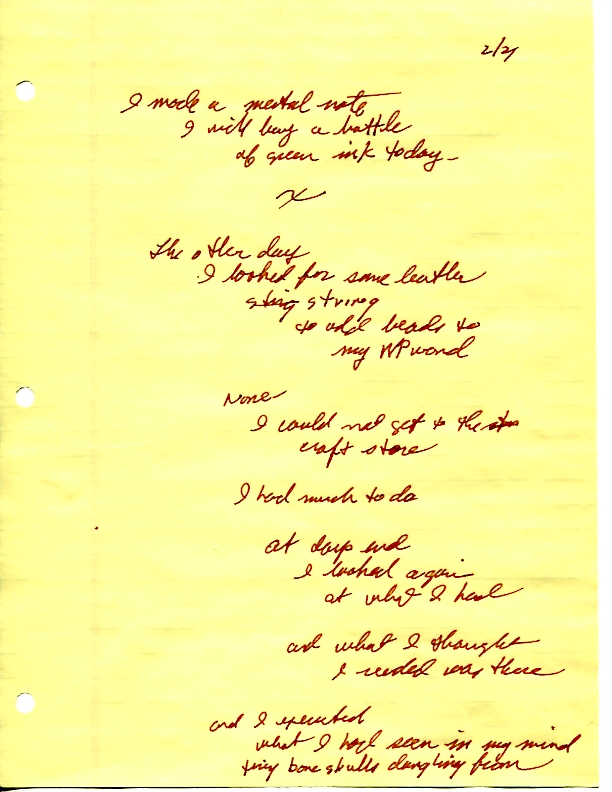 2/21
I made a mental note
I will buy a bottle
of green ink today
x
The other day
I looked for some leather
string string
to add beads to
my wand
None
I could not get to the
craft store
I had much to do
at days end
I looked again
at what I had
and what I thought
I needed was there
and I executed
what I had seen in my mind
tiny bone skulls dangling from